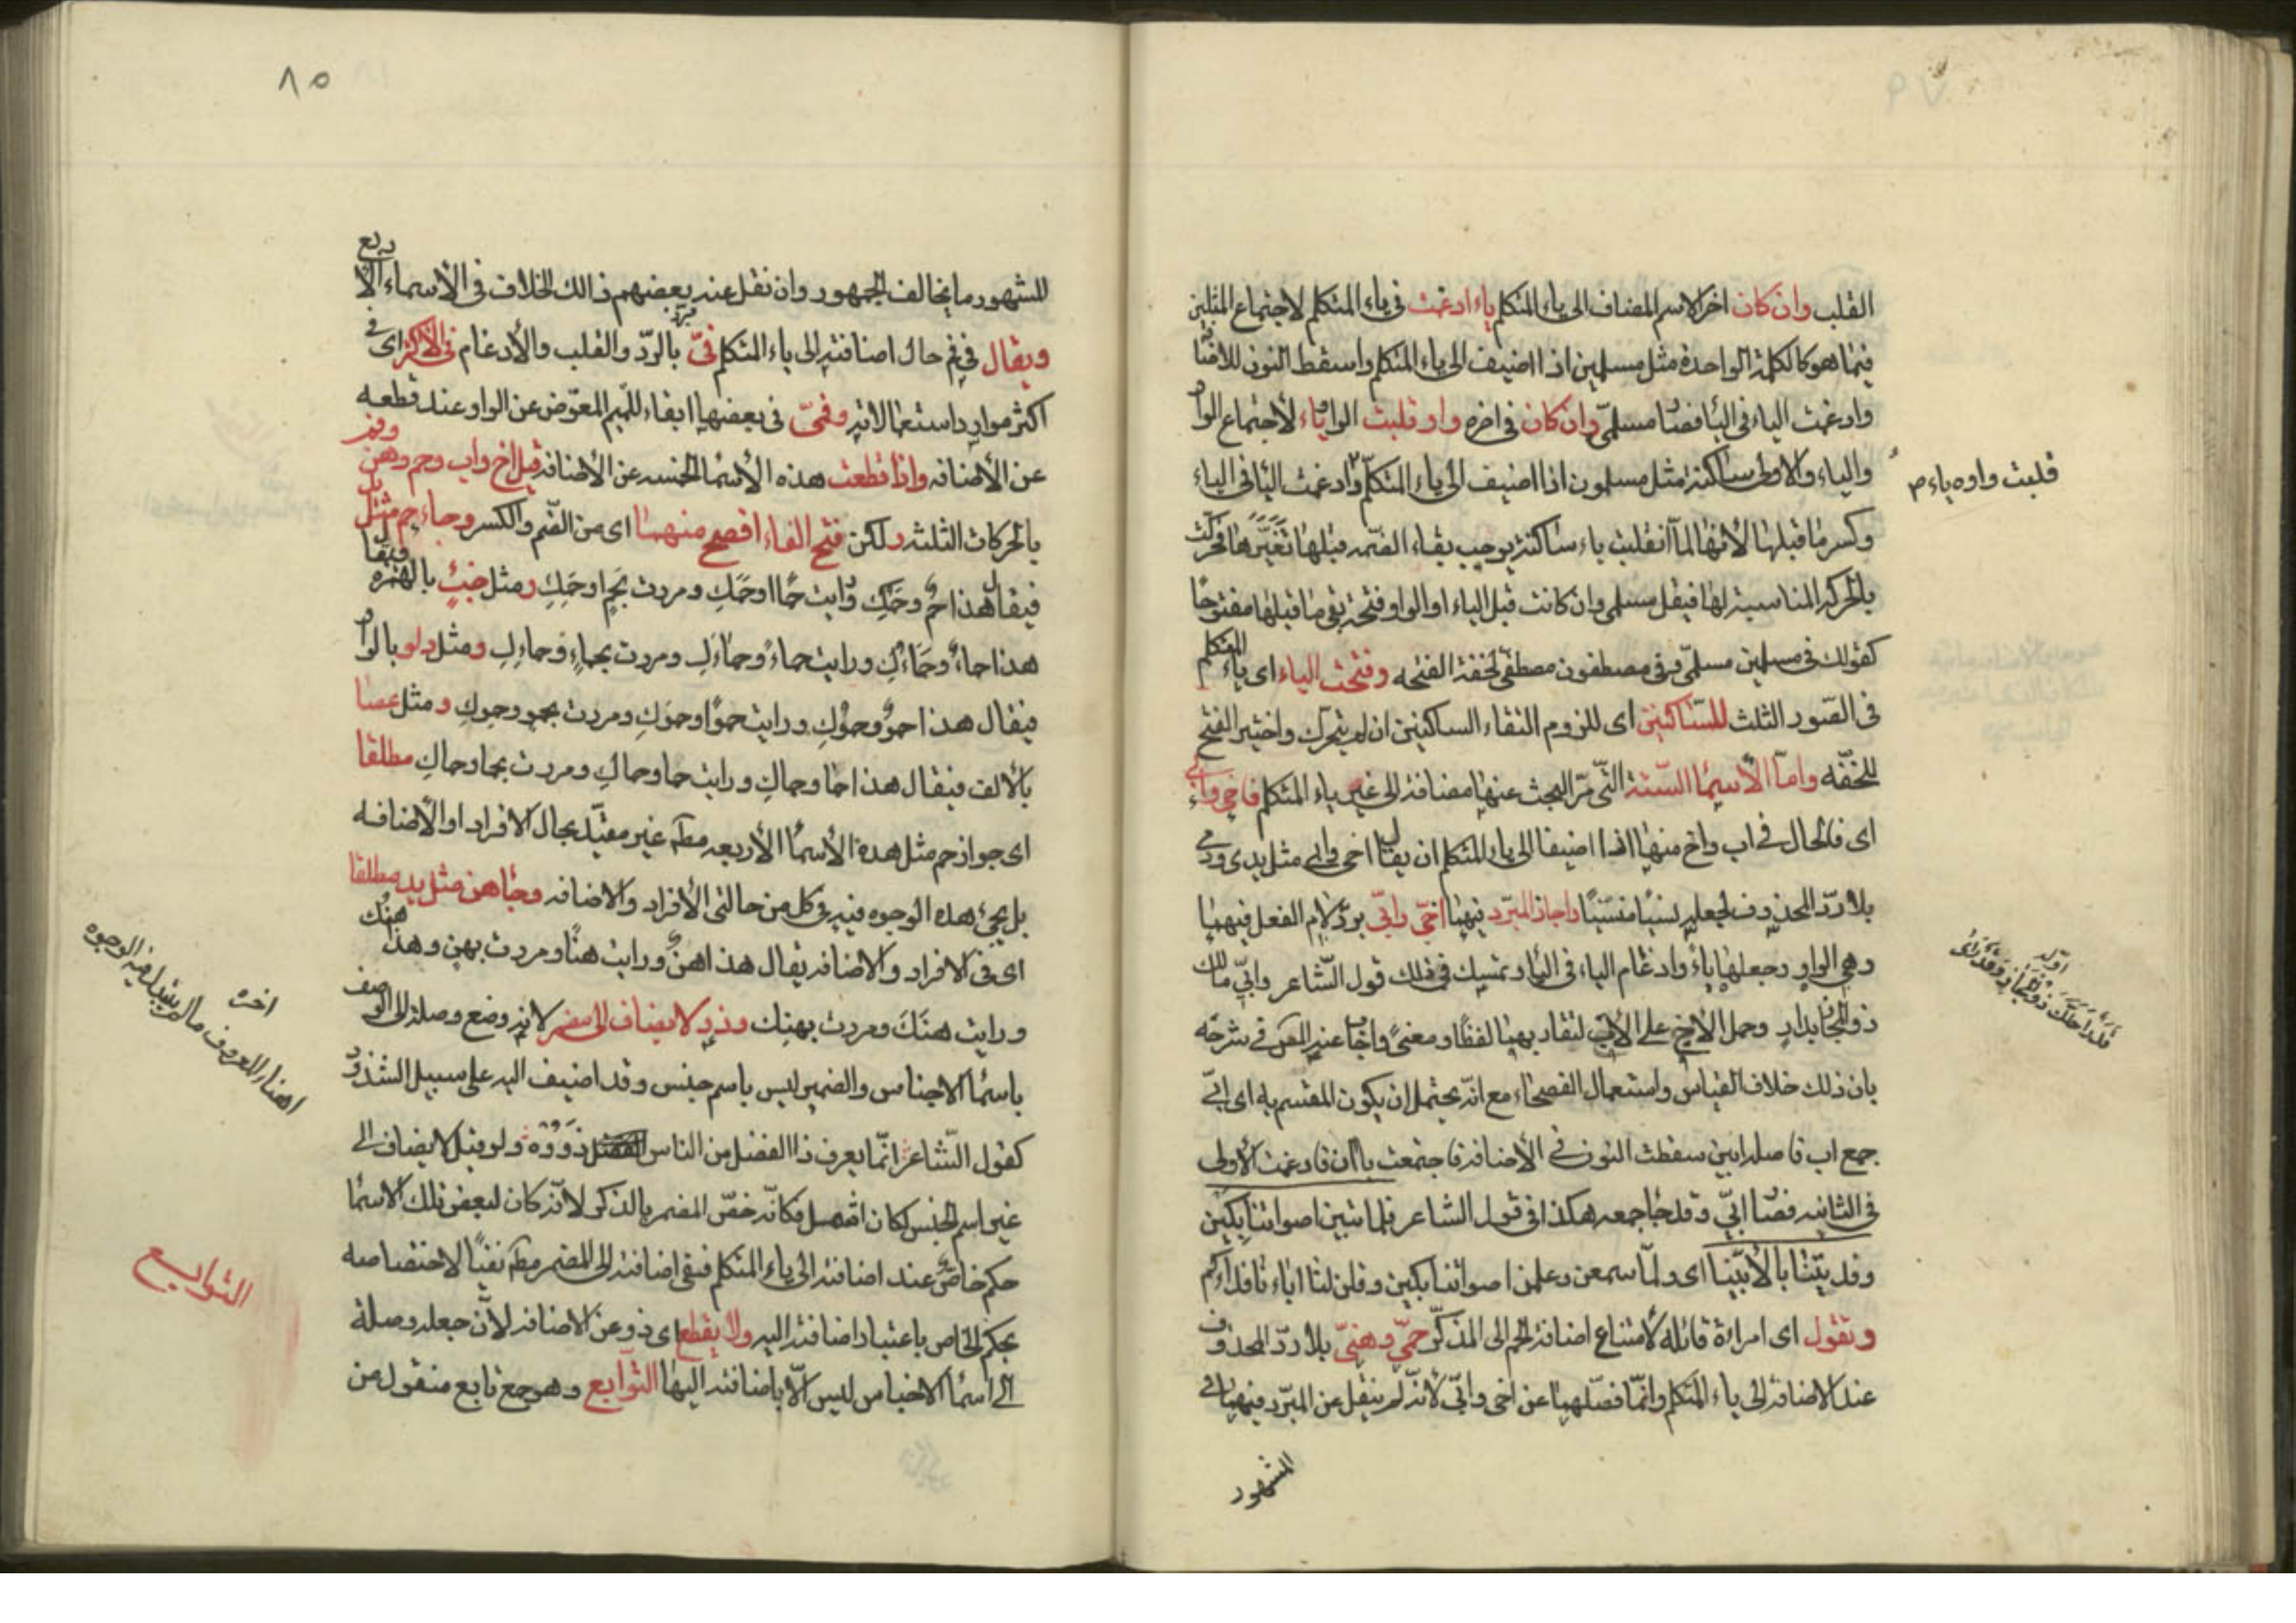 القلب وان كان اخر الاسم المضاف الى ياء المتكلم ياء ادغمت فى ياء المتكلم لاجتماع المثلين
فيما هو كالكلمة الواحدة مثل مسلمين اذا اضيف الى ياء المتكلم واسقط النون للاضافة
وادغمت الياء فى الياء فصار مسلمىّ وان كان فى اخره واو قلبت الواو ياء لاجتماع الواو
والياء والاولى ساكنة مثل مسلمون اذا اضيف الى ياء المتكلم وادغمت الياء فى الياء
قلبت واوه ياء م
وكسر ما قبلها لانها لما انقلبت ياء ساكنة يوجب بقاء الضمه قبلها تغيّرها فحركت
بالحركه المناسبة لها فيقل مسلمى وان كانت قبل الياء او الواو فتحة بقى ما قبلها مفتوحًا
كقولك فى مسلمين مسلمىّ وفى مصطفون مصطفىّ لخفة الفتحه وفتحت الياء اى ياء المتكلم
فى الصور الثلث للساكنين اى للزوم التقاء الساكنين ان لم يتحرك واختير الفتح
للخفّه وامّا الاسما الستة التى مرّ البحث عنها مضافة الى غير ياء المتكلم فاخى وابى
اى فالحال فى اب واخ منها اذا اضيفا الى ياء المتكلم ان يقال اخى وابى مثل يدى ودمى
بلا ردّ المحذوف لجعله نسيًا منسيًا واجاز المبرّد فيهما اخىّ وابىّ بردّ لام الفعل فيهما
وهى الواو وجعلها ياءً وادغام الياء فى الياء وتمسك فى ذلك قول الشاعر وابىّ مالك
اوّله
قدر احلّك ذو المجاز وقد ارى
ذو المجاز بدار وحمل الاخ على الاب لتقاربهما لفظًا ومعنىً واجاب عنه المص فى شرحه
بان ذلك خلاف القياس واستعمال الفصحاء مع انّه يحتمل ان يكون المقسم به اى ابىّ
جمع اب فاصله ابين سقطت النون فى الاضافة فاجتمعت ياآن فادغمت الاولى
فى الثانيه فصار ابىّ وقد جاء جمعه هكذا فى قول الشاعر فلما تبين اصواتنا بكين
وفديتنا بالابينا اى ولمّا سمعن وعلمن اصواتنا بكين وقلن لنا اباءنا فداءكم
وتقول اى امراة قائله لامتناع اضافة الحم الى المذكّر حمىّ وهنىّ بلا ردّ المحذوف
عند الاضافة الى ياء المتكلم وانّما فصّلهما عن اخى وابىّ لانّه لم ينقل عن المبرّد فيهما فى
المشهور
٨٥
المشهور ما يخالف الجمهور وان نقل عنه بعضهم ذالك الخلاف فى الاسماء الاربع
ويقال فى فم حال اضافته الى ياء المتكلم فىّ بالردّ والقلب والادغام فى الاكثر اى فى
اكثر موارد استعمالاته وفمىّ فى بعضها ابقاء للميم المعوّض عن الواو عند قطعه
عن الاضافه واذا قطعت هذه الاسما الخمسه عن الاضافة قيل اخ واب وحم وهن وفم
بالحركات الثلثه ولكن فتح الفاء افصح منهما اى من الضّم والكسر وجاء حم مثل يد
فيقال هذا حمٌ وحمك ورايت حمًا او حمَكِ ومررت بحمٍ او حمِكِ ومثل خبئٍ بالهمزه فيقال
هذا حماءٌ وحماءكِ ورايت حماءً وحماءَكِ ومررت بحماءٍ وحماءِكِ ومثل دلو بالواو
فيقال هذا حموٌ وحموُكِ ورايت حموًا وحموَكِ ومررت بحموٍ وحموِكِ ومثل عصا
بالالف فيقال هذا حمًا وحماكِ ورايت حما وحماكِ ومررت بحما وحماكِ مطلقا
اى جواز حم مثل هذه الاسما الاربعه مطلقا غير مقيّد بحال الافراد او الاضافه
بل يجئ هذه الوجوه فيه فى كل من حالتى الافراد والاضافه وجاء هن مثل يد مطلقا
اى فى الافراد والاضافة يقال هذا هنٌ ورايت هنًا ومررت بهنٍ وهذا هنُك
ورايت هنَك ومررت بهنِك وذو لا يضاف الى مضمر لانه وضع وصلة الى الوصف
باسما الاجناس والضمير ليس باسم جنس وقد اضيف اليه على سبيل الشذوذ
اخره
اهناء المعروف ما لم يتبدل فيه الوجوه
كقول الشاعر انّما يعرف ذا الفضل من الناس ذووه ولو قيل لا يضاف الى
غير اسم الجنس لكان اشمل فكانّه خصّ المضمر بالذكر لانّه كان لبعض تلك الاسما
حكم خاصّ عند اضافته الى ياء المتكلم فنفى اضافته الى المضمر مطلقا نفيًا لاختصاصه
بحكم الخاص باعتبار اضافته اليه ولا يقطع اى ذو عن الاضافة لانّ جعله وصلة
الى اسما الاجناس ليس الّا باضافته اليها التوابع وهو جمع تابع منقول من
التوابع